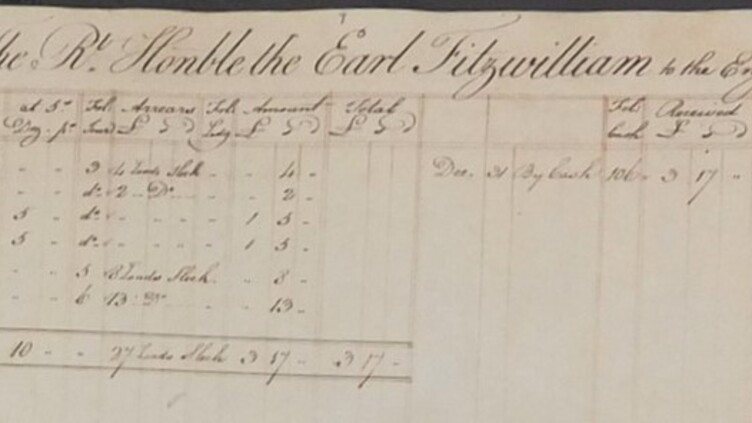 he Rt. Honble the Earl Fitzwilliam to the En
at 5s Fol: Arrears Fol: Amount Total Fol: Received
£ S D £ S D £ S D Cash £ S D
- - 3 4 Loads - - 4 - Dec. 31 By Cash 106 - 3 17 "
- - do. 2 - Do. - - - 2 -
5 - do. - - - - 1 5 -
5 - do. - - - - 1 5 -
- - 5 8 Loads - - 8 -
- - 6 13 Do. - - - 13 -
10 - - 27 Loads 3 17 - 3 17 -